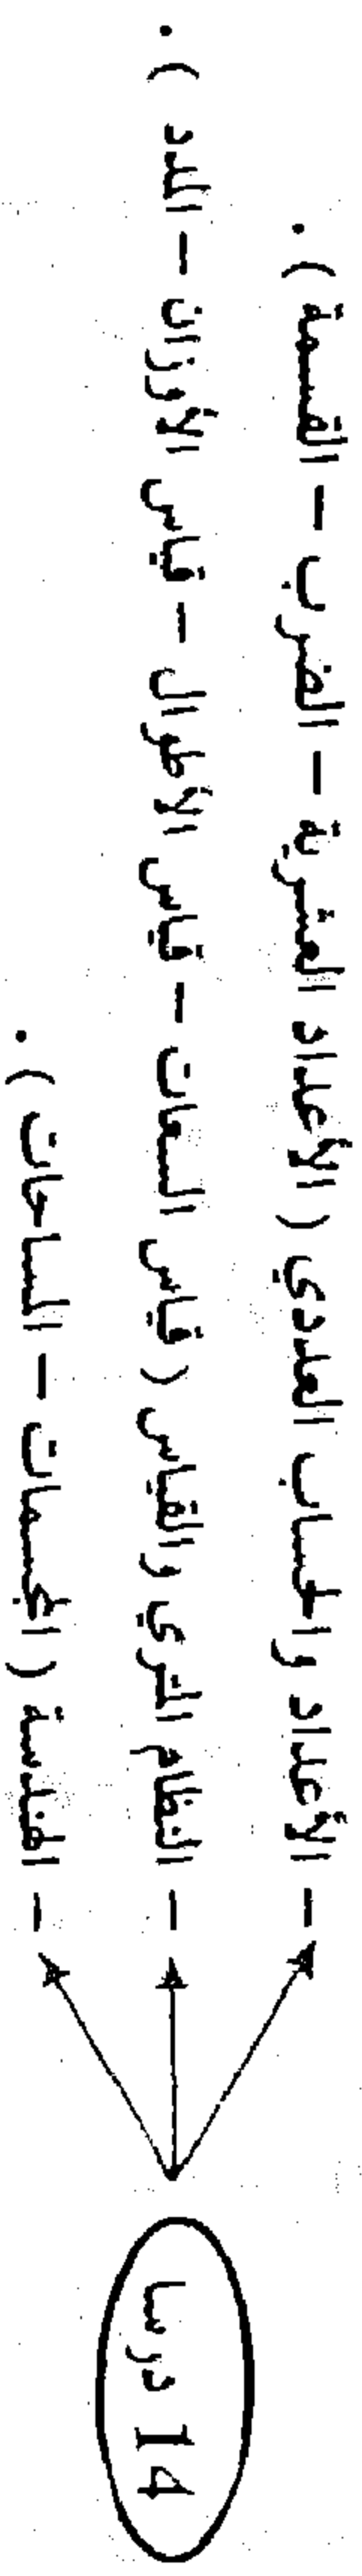 14 درسا
- الأعداد والحساب العددي ( الأعداد العشرية - الضرب - القسمة ) .
- النظام المتري والقياس ( قياس السعات - قياس الأطوال - قياس الأوزان - المدد ) .
- الهندسة ( المجسمات - المساحات ) .